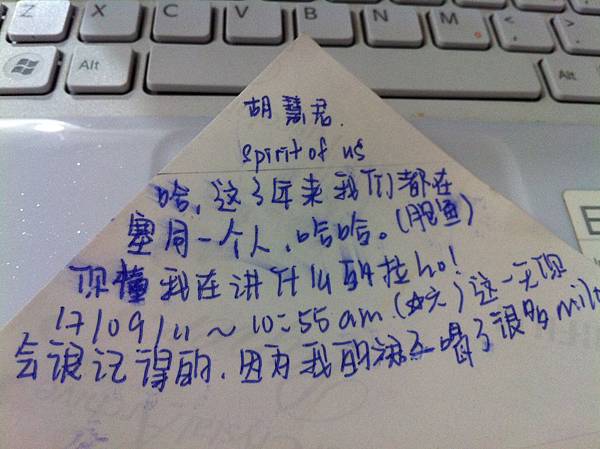 Z X C V B N M < ,
Alt
Alt
胡慧君.
spirit of us
哈,这3年来我们都在
塞同一个人,哈哈。(胆鱼)
你懂我在讲什么的拉ho!
17/09/11 ~ 10:55am (六) 这一天你
会很记得的.因为我的 喝了很多milo